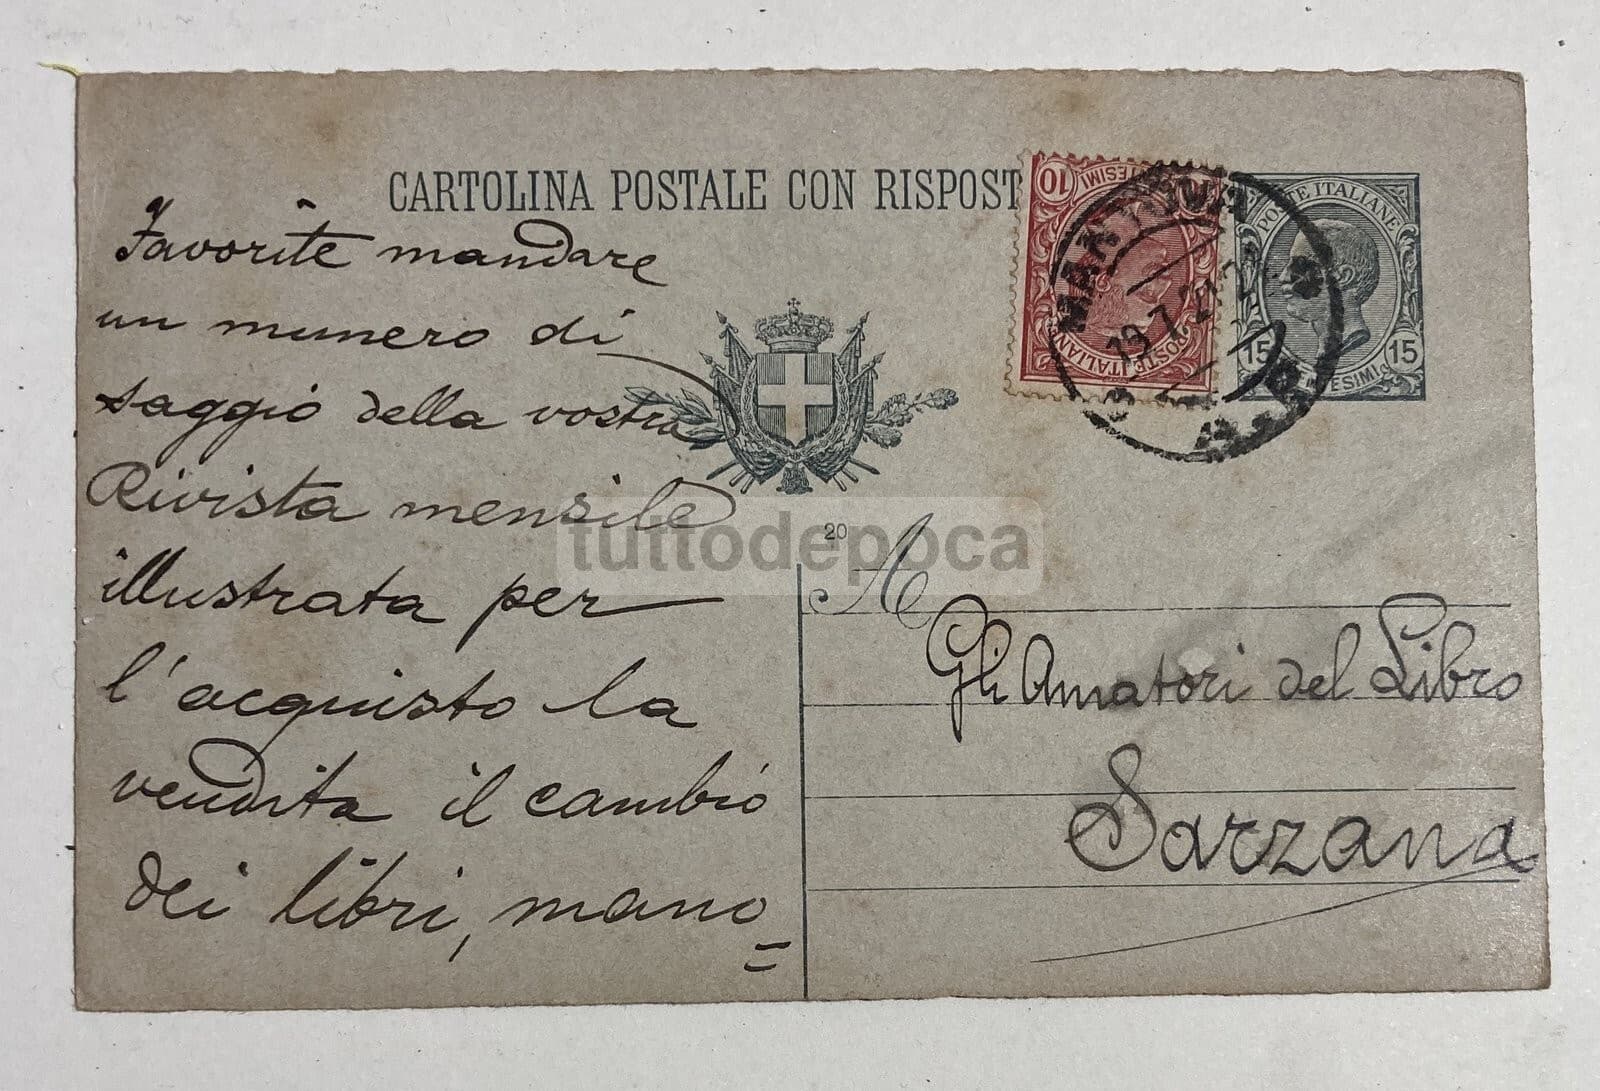 CARTOLINA POSTALE CON RISPOST
Favorite mandare
un numero di
saggio della vostra
Rivista mensile
illustrata per
l'acquisto la
vendita il cambio
dei libri, mano=
10
POSTE ITALIANE
MANTOVA
19.7.2
POSTE ITALIANE
15 15
tuttodepoca
20
A
Gli Amatori del Libro
Sarzana